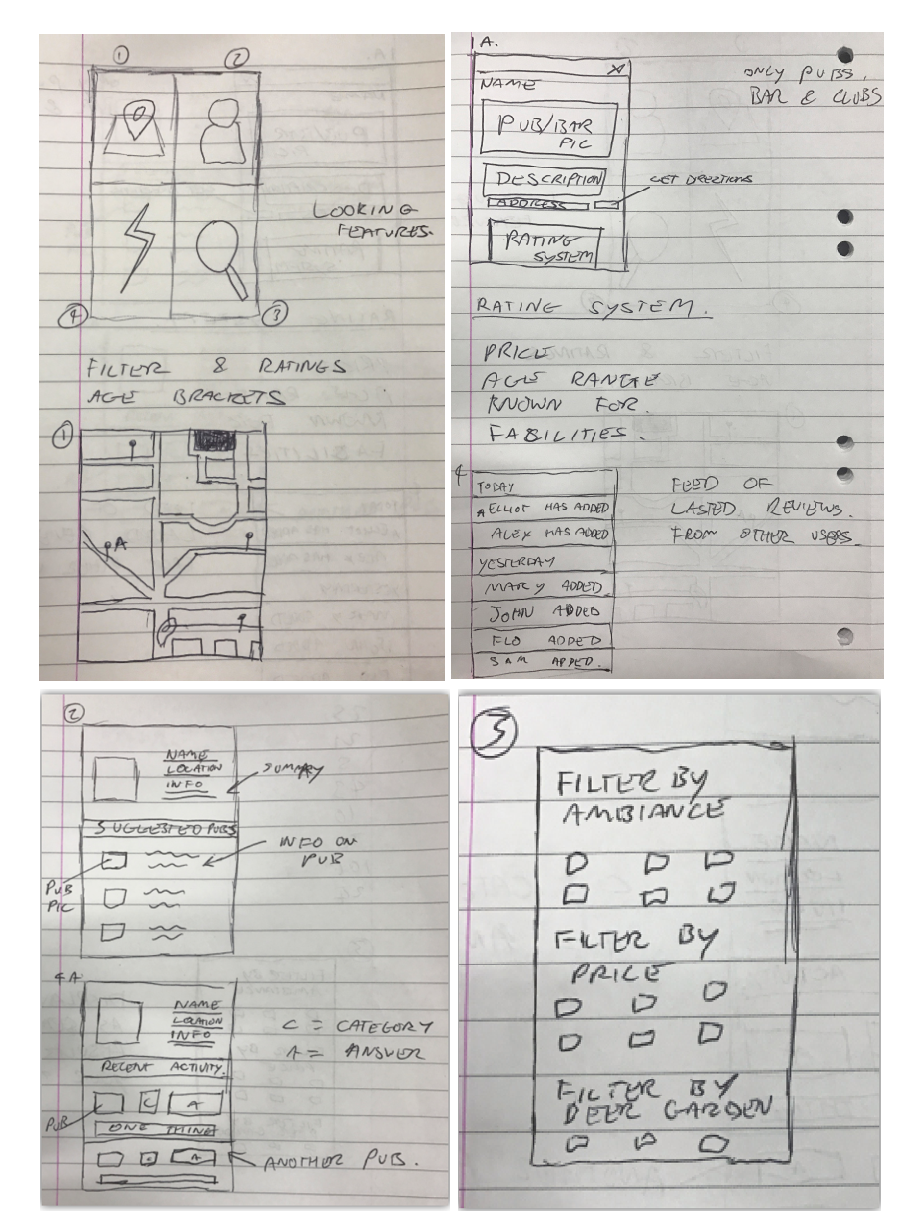 1
2
LOOKING
FEATURES.
4
3
FILTER & RATINGS
AGE BRACKETS
1
A
1A.
ONLY PUBS,
BAR & CLUBS
X
NAME
PUB/BAR
PIC
DESCRIPTION
GET DIRECTIONS
ADDRESS
RATING
SYSTEM
RATING SYSTEM.
PRICE
AGE RANGE
KNOWN FOR.
FABILITIES.
4
TODAY
A ELLIOT HAS ADDED
ALEX HAS ADDED
YESTERDAY
MARY ADDED
JOHN ADDED
FLO ADDED
SAM ADDED.
FEED OF
LASTED REVIEWS.
FROM OTHER USERS.
2
NAME
LOCATION
INFO
SUMMARY
SUGGESTED PUBS
INFO ON
PUB
PUB
PIC
4A
NAME
LOCATION
INFO
C = CATEGORY
A = ANSWER
RECENT ACTIVITY.
PUB
C
A
ONE THING
A
ANOTHER PUB.
3
FILTER BY
AMBIANCE
FILTER BY
PRICE
FILTER BY
BEER GARDEN